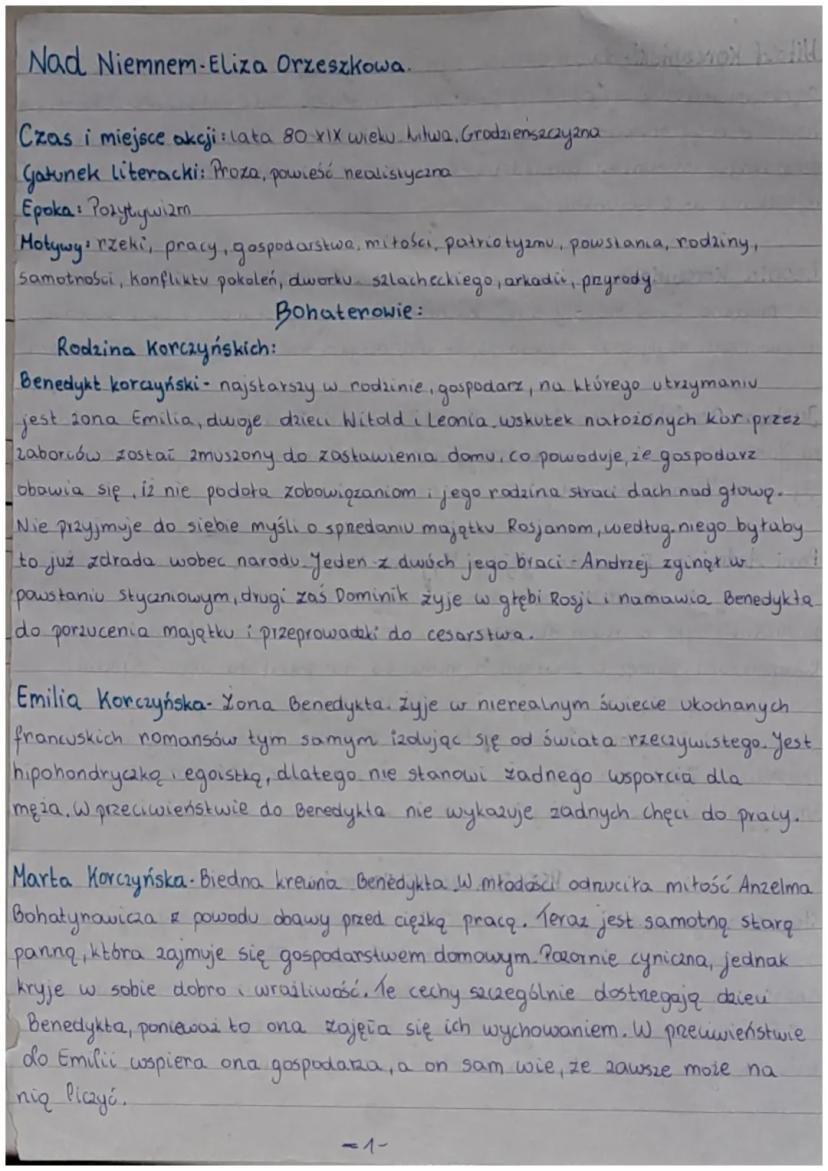 Nad Niemnem - Eliza Orzeszkowa.
Czas i miejsce akcji: lata 80 XIX wieku. Litwa, Grodzieńszczyzna
Gatunek literacki: Proza, powieść realistyczna
Epoka: Pozytywizm
Motywy: rzeki, pracy, gospodarstwa, miłości, patriotyzmu, powstania, rodziny,
samotności, konfliktu pokoleń, dworku szlacheckiego, arkadii, przyrody
Bohaterowie:
Rodzina Korczyńskich:
Benedykt Korczyński - najstarszy w rodzinie, gospodarz, na którego utrzymaniu
jest żona Emilia, dwoje dzieci Witold i Leonia, wskutek nałożonych kar przez
zaborców został zmuszony do zastawienia domu, co powoduje, że gospodarz
obawia się, iż nie podoła zobowiązaniom i jego rodzina straci dach nad głową.
Nie przyjmuje do siebie myśli o sprzedaniu majątku Rosjanom, według niego byłaby
to już zdrada wobec narodu. Jeden z dwóch jego braci - Andrzej zginął w
powstaniu styczniowym, drugi zaś Dominik żyje w głębi Rosji i namawia Benedykta
do porzucenia majątku i przeprowadzki do cesarstwa.
Emilia Korczyńska - Żona Benedykta. Żyje w nierealnym świecie ukochanych
francuskich romansów tym samym izolując się od świata rzeczywistego. Jest
hipohondryczką i egoistką, dlatego nie stanowi żadnego wsparcia dla
męża. W przeciwieństwie do Benedykta nie wykazuje żadnych chęci do pracy.
Marta Korczyńska - Biedna krewna Benedykta. W młodości odrzuciła miłość Anzelma
Bohatyrowicza z powodu obawy przed ciężką pracą. Teraz jest samotną starą
panną, która zajmuje się gospodarstwem domowym. Pozornie cyniczna, jednak
kryje w sobie dobro i wrażliwość. Te cechy szczególnie dostrzegają dzieci
Benedykta, ponieważ to ona zajęła się ich wychowaniem. W przeciwieństwie
do Emilii wspiera ona gospodarza, a on sam wie, że zawsze może na
nią liczyć.
-1-